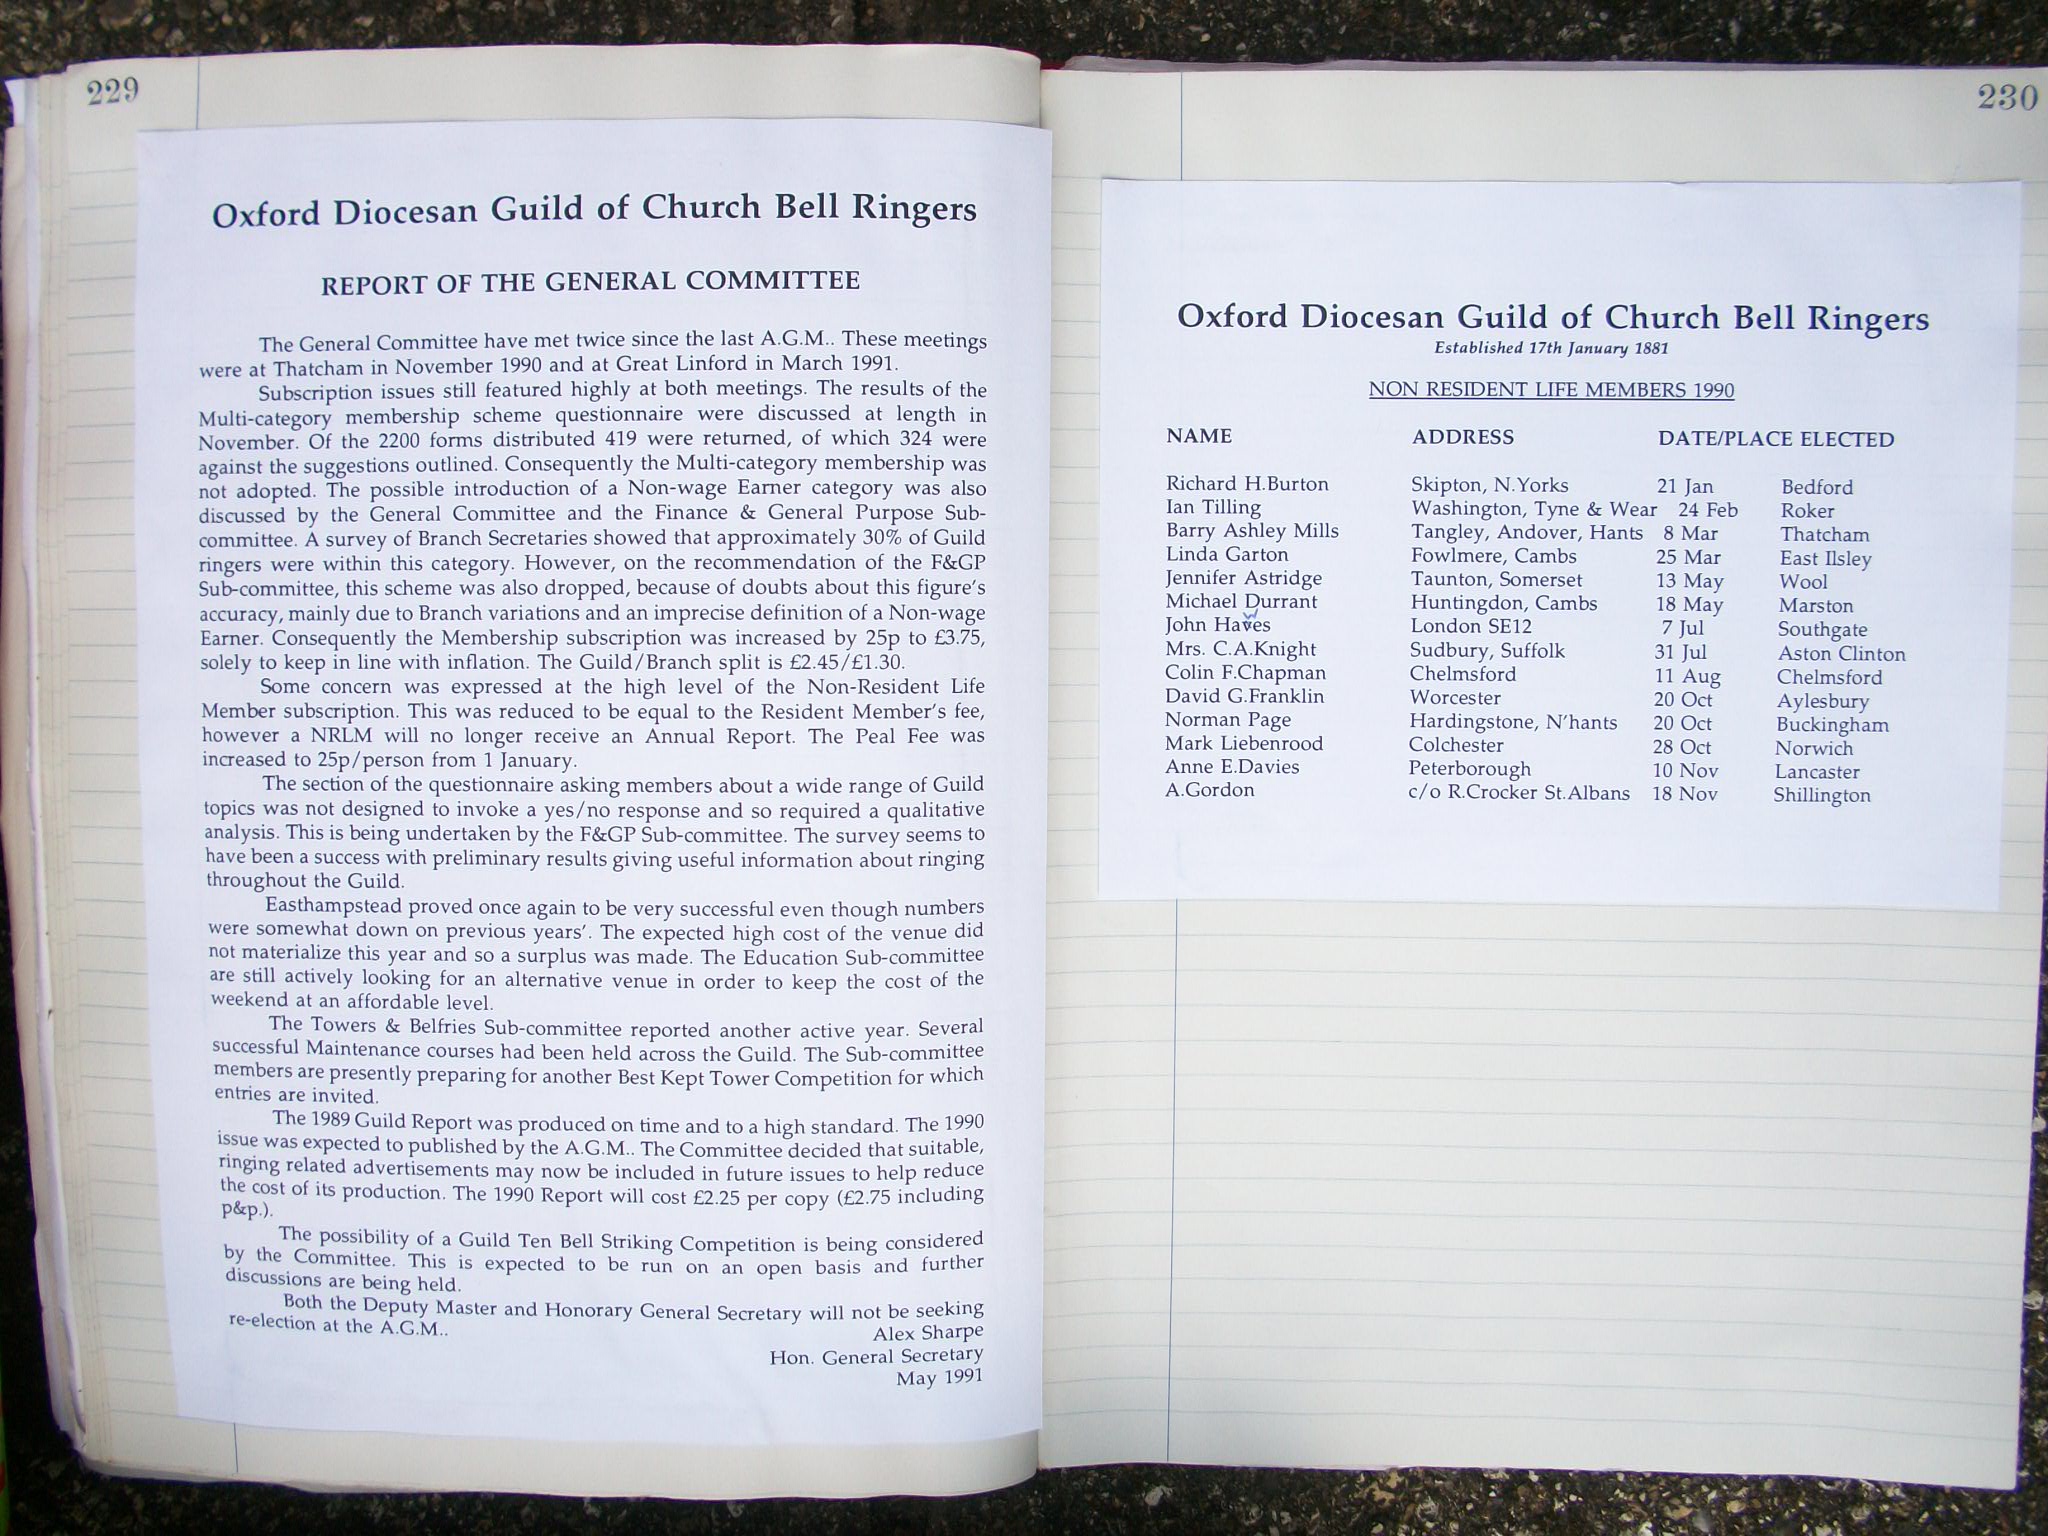 229
Oxford Diocesan Guild of Church Bell Ringers
REPORT OF THE GENERAL COMMITTEE
The General Committee have met twice since the last A.G.M.. These meetings
were at Thatcham in November 1990 and at Great Linford in March 1991.
Subscription issues still featured highly at both meetings. The results of the
Multi-category membership scheme questionnaire were discussed at length in
November. Of the 2200 forms distributed 419 were returned, of which 324 were
against the suggestions outlined. Consequently the Multi-category membership was
not adopted. The possible introduction of a Non-wage Earner category was also
discussed by the General Committee and the Finance & General Purpose Sub-
committee. A survey of Branch Secretaries showed that approximately 30% of Guild
ringers were within this category. However, on the recommendation of the F&GP
Sub-committee, this scheme was also dropped, because of doubts about this figure's
accuracy, mainly due to Branch variations and an imprecise definition of a Non-wage
Earner. Consequently the Membership subscription was increased by 25p to £3.75,
solely to keep in line with inflation. The Guild/Branch split is £2.45/£1.30.
Some concern was expressed at the high level of the Non-Resident Life
Member subscription. This was reduced to be equal to the Resident Member's fee,
however a NRLM will no longer receive an Annual Report. The Peal Fee was
increased to 25p/person from 1 January.
The section of the questionnaire asking members about a wide range of Guild
topics was not designed to invoke a yes/no response and so required a qualitative
analysis. This is being undertaken by the F&GP Sub-committee. The survey seems to
have been a success with preliminary results giving useful information about ringing
throughout the Guild.
Easthampstead proved once again to be very successful even though numbers
were somewhat down on previous years'. The expected high cost of the venue did
not materialize this year and so a surplus was made. The Education Sub-committee
are still actively looking for an alternative venue in order to keep the cost of the
weekend at an affordable level.
The Towers & Belfries Sub-committee reported another active year. Several
successful Maintenance courses had been held across the Guild. The Sub-committee
members are presently preparing for another Best Kept Tower Competition for which
entries are invited.
The 1989 Guild Report was produced on time and to a high standard. The 1990
issue was expected to published by the A.G.M.. The Committee decided that suitable,
ringing related advertisements may now be included in future issues to help reduce
the cost of its production. The 1990 Report will cost £2.25 per copy (£2.75 including
p&p.).
The possibility of a Guild Ten Bell Striking Competition is being considered
by the Committee. This is expected to be run on an open basis and further
discussions are being held.
Both the Deputy Master and Honorary General Secretary will not be seeking
re-election at the A.G.M..
Alex Sharpe
Hon. General Secretary
May 1991
230
Oxford Diocesan Guild of Church Bell Ringers
Established 17th January 1881
NON RESIDENT LIFE MEMBERS 1990
NAME ADDRESS DATE/PLACE ELECTED
Richard H.Burton Skipton, N.Yorks 21 Jan Bedford
Ian Tilling Washington, Tyne & Wear 24 Feb Roker
Barry Ashley Mills Tangley, Andover, Hants 8 Mar Thatcham
Linda Garton Fowlmere, Cambs 25 Mar East Ilsley
Jennifer Astridge Taunton, Somerset 13 May Wool
Michael Durrant Huntingdon, Cambs 18 May Marston
John Hawes London SE12 7 Jul Southgate
Mrs. C.A.Knight Sudbury, Suffolk 31 Jul Aston Clinton
Colin F.Chapman Chelmsford 11 Aug Chelmsford
David G.Franklin Worcester 20 Oct Aylesbury
Norman Page Hardingstone, N'hants 20 Oct Buckingham
Mark Liebenrood Colchester 28 Oct Norwich
Anne E.Davies Peterborough 10 Nov Lancaster
A.Gordon c/o R.Crocker St.Albans 18 Nov Shillington